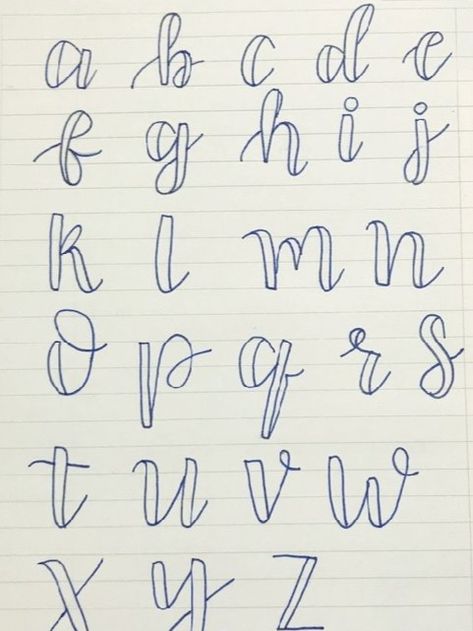 a b c d e
f g h i j
k l m n
o p q r s
t u v w
x y z